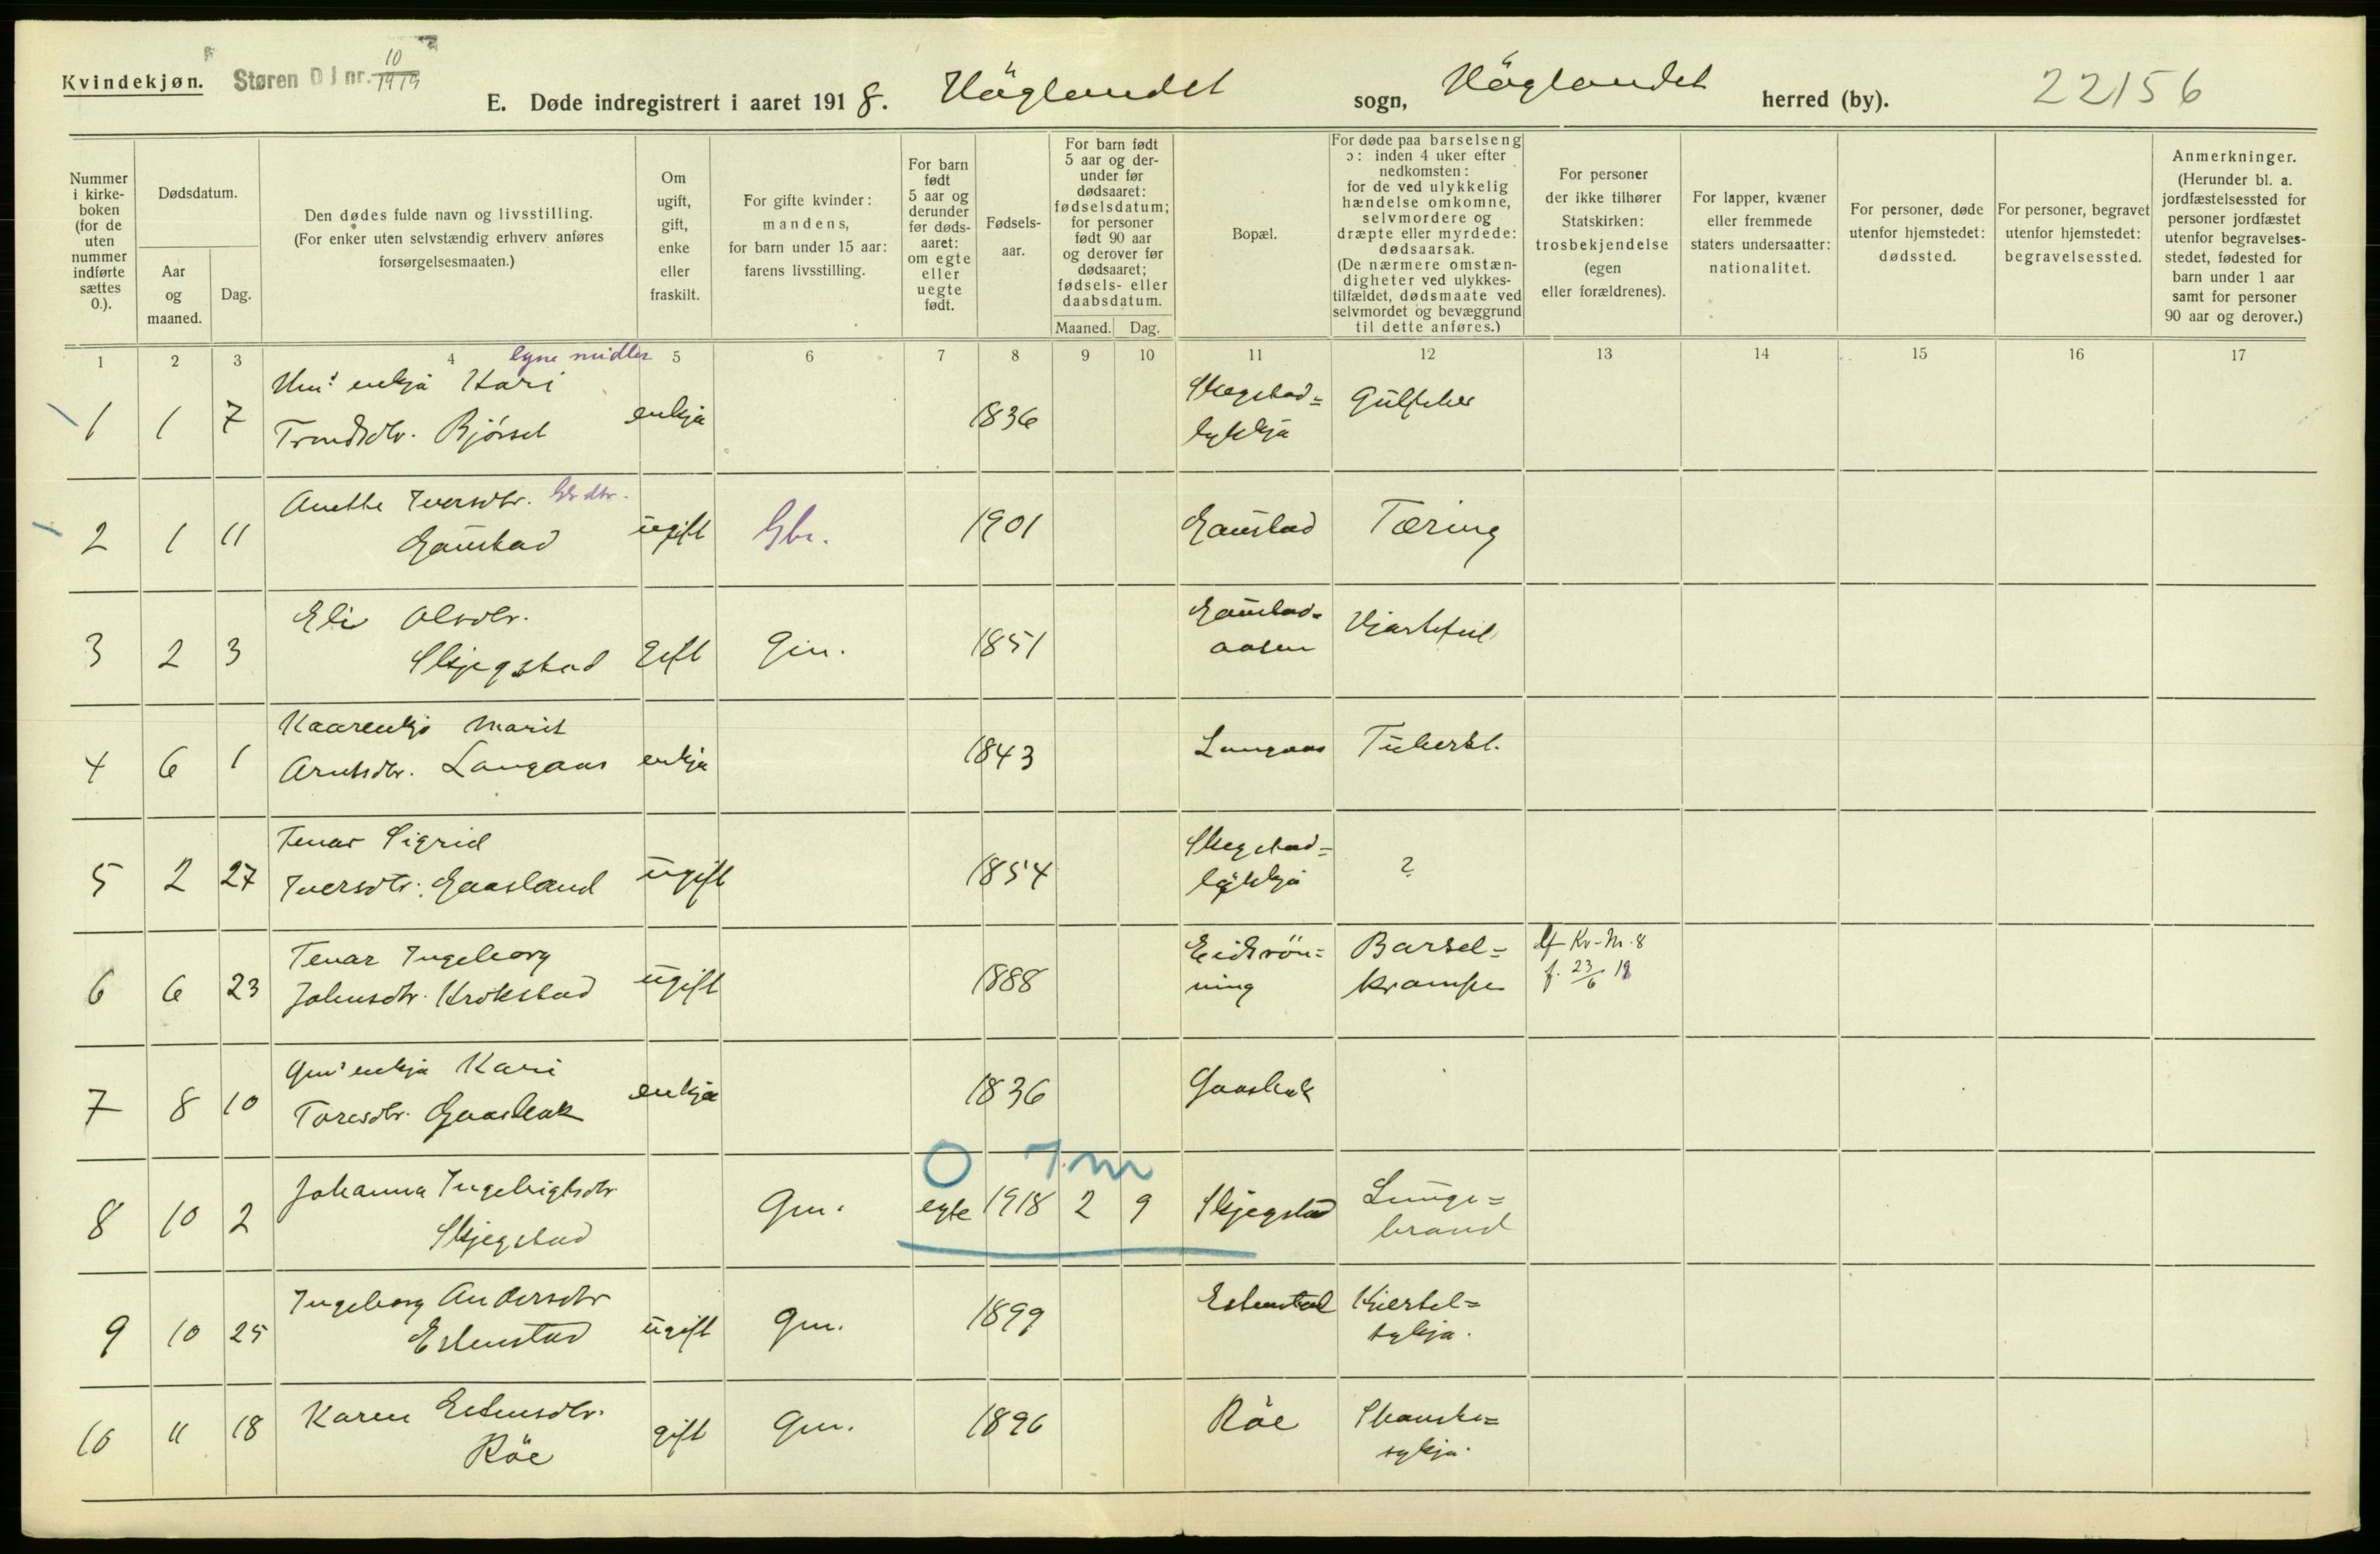 Kvindekjøn.
Støren D J nr. 10/1919
E. Døde indregistrert i aaret 1918. Höglandet sogn, Höglandet herred (by).
22156
Nummer i kirke- boken (for de uten nummer indførte sættes 0.).
Dødsdatum.
Aar og maaned.
Dag.
Den dødes fulde navn og livsstilling.
(For enker uten selvstændig erhverv anføres
forsørgelsesmaaten.)
Om ugift, gift, enke eller fraskilt.
For gifte kvinder: mandens, for barn under 15 aar: farens livsstilling.
For barn født 5 aar og derunder før døds- aaret: om egte eller uegte født.
Fødsels- aar.
For barn født 5 aar og der- under før dødsaaret: fødselsdatum; for personer født 90 aar og derover før dødsaaret; fødsels- eller daabsdatum.
Maaned.
Dag.
Bopæl.
For døde paa barselseng ɔ: inden 4 uker efter nedkomsten: for de ved ulykkelig hændelse omkomne, selvmordere og dræpte eller myrdede: dødsaarsak. (De nærmere omstæn- digheter ved ulykkes- tilfældet, dødsmaate ved selvmordet og bevæggrund til dette anføres.)
For personer der ikke tilhører Statskirken: trosbekjendelse (egen eller forældrenes).
For lapper, kvæner eller fremmede staters undersaatter: nationalitet.
For personer, døde utenfor hjemstedet: dødssted.
For personer, begravet utenfor hjemstedet: begravelsessted.
Anmerkninger. (Herunder bl. a. jordfæstelsessted for personer jordfæstet utenfor begravelses- stedet, fødested for barn under 1 aar samt for personer 90 aar og derover.)
1 2 3 4 5 6 7 8 9 10 11 12 13 14 15 16 17
egne midler
Hmˢ enkja Kari
1 1 7 Trondsdtr. Bjørset enkja 1836 Skegstad= lykkja
Anethe Iversdtr. Gbrdtr.
2 1 11 Gaustad ugift Gbr. 1901 Gaustad Tæring
Eli Olsdtr.
3 2 3 Skjegstad Gift Gm. 1851 Gaustad= aasen Hjartefeil
Kaarenkje Marit
4 6 1 Arntsdtr. Langaas enkja 1843 Langaas Tuberkl.
Tenar Sigrid
5 2 27 Iversdtr. Gaasland ugift 1854 Skegstad= lykkja ?
Tenar Ingeborg
6 6 23 Johnsdtr. Krokstad ugift 1888 Eidsrön= ning Barsel= krampe df Kv-Nr. 8 f. 23/6 18
Gmˢ enkja Kari
7 8 10 Toresdtr. Gaasbak enkja 1836 Gaasbak
0 7 m
Johanna Ingebrigtsdtr
8 10 2 Skjegstad Gm. egte 1918 2 9 Skjegstad Lunge= brand
Ingeborg Andersdtr
9 10 25 Estenstad ugift Gm. 1899 Estenstad Kjertel= sykja.
Karen Estensdtr.
10 " 18 Röe gift Gm. 1896 Röe Spanske= sykja.